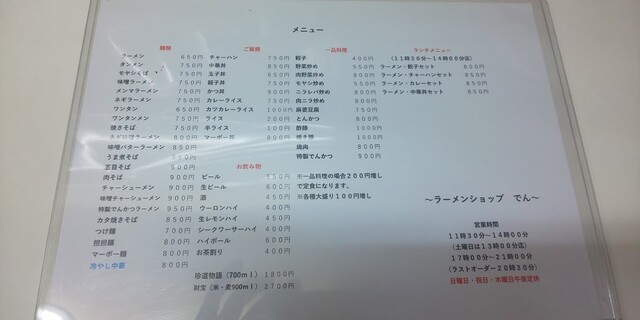 メニュー
麺類
ラーメン 650円
タンメン 750円
モヤシそば 750円
味噌ラーメン 750円
メンマラーメン 800円
ネギラーメン 750円
ワンタン
ワンタンメン 750円
焼きそば 750円
ネギ味噌ラーメン 800円
味噌バターラーメン
うま煮そば
五目そば 900円
肉そば 900円
チャーシューメン 900円
味噌チャーシューメン
特製でんかつラーメン 950円
カタ焼きそば 850円
つけ麺 700円
担担麺 800円
マーボー麺 800円
冷やし中華 800円
ご飯類
チャーハン 750円
中華丼 750円
玉子丼
親子丼
かつ丼
カレーライス 750円
カツカレーライス 1000円
ライス 200円
半ライス 100円
マーボー丼
お飲み物
ビール
生ビール 600円
酒 450円
ウーロンハイ 400円
生レモンハイ 450円
シークワーサーハイ 400円
ハイボール 600円
お茶割り 400円
珍道物語(700ml) 1800円
財宝(米・麦900ml) 2700円
一品料理
餃子 400円
野菜炒め 550円
肉野菜炒め 800円
モヤシ炒め 550円
ニラレバ炒め 800円
肉ニラ炒め 800円
麻婆豆腐 750円
とんかつ 800円
酢豚 1000円
焼肉 800円
特製でんかつ 900円
※一品料理の場合200円増し
で定食になります。
※各種大盛り100円増し
ランチメニュー
(11時30分~14時00分迄)
ラーメン・餃子セット 800円
ラーメン・チャーハンセット 850円
ラーメン・カレーセット 850円
ラーメン・中華丼セット 850円
~ラーメンショップ でん~
営業時間
11時30分~14時00分
(土曜日は13時00分迄
17時00分~21時00分
(ラストオーダー20時30分)
日曜日・祝日・木曜日午後定休